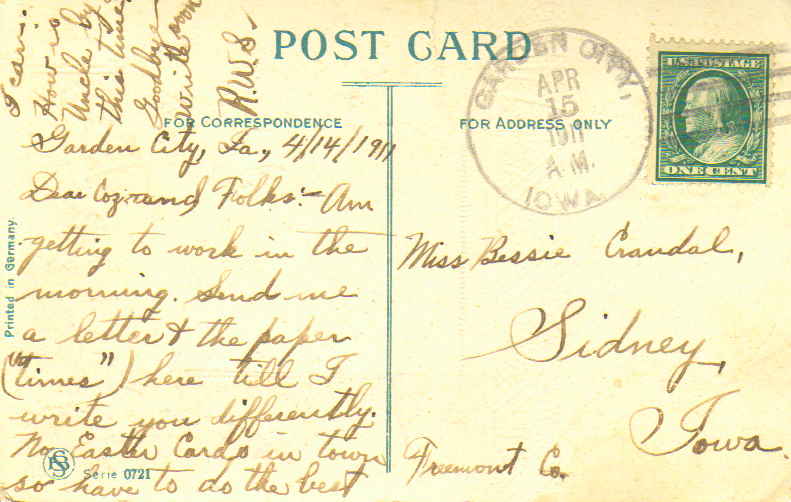 POST CARD
FOR CORRESPONDENCE
FOR ADDRESS ONLY
GARDEN CITY,
APR
15
1911
A.M.
IOWA.
U.S. POSTAGE
ONE CENT
Garden City, Ia., 4/14/1911
Dear Coz. and Folks:- Am
getting to work in the
morning. Send me
a letter & the paper
("times") here till I
write you differently.
No Easter Cards in town
so have to do the best
I can.
How is
Uncle by
this time?
Goodbye
write soon
R.W.S.
Miss Bessie Crandal,
Sidney,
Iowa.
Freemont Co.
Printed in Germany
SSB
Serie 0721